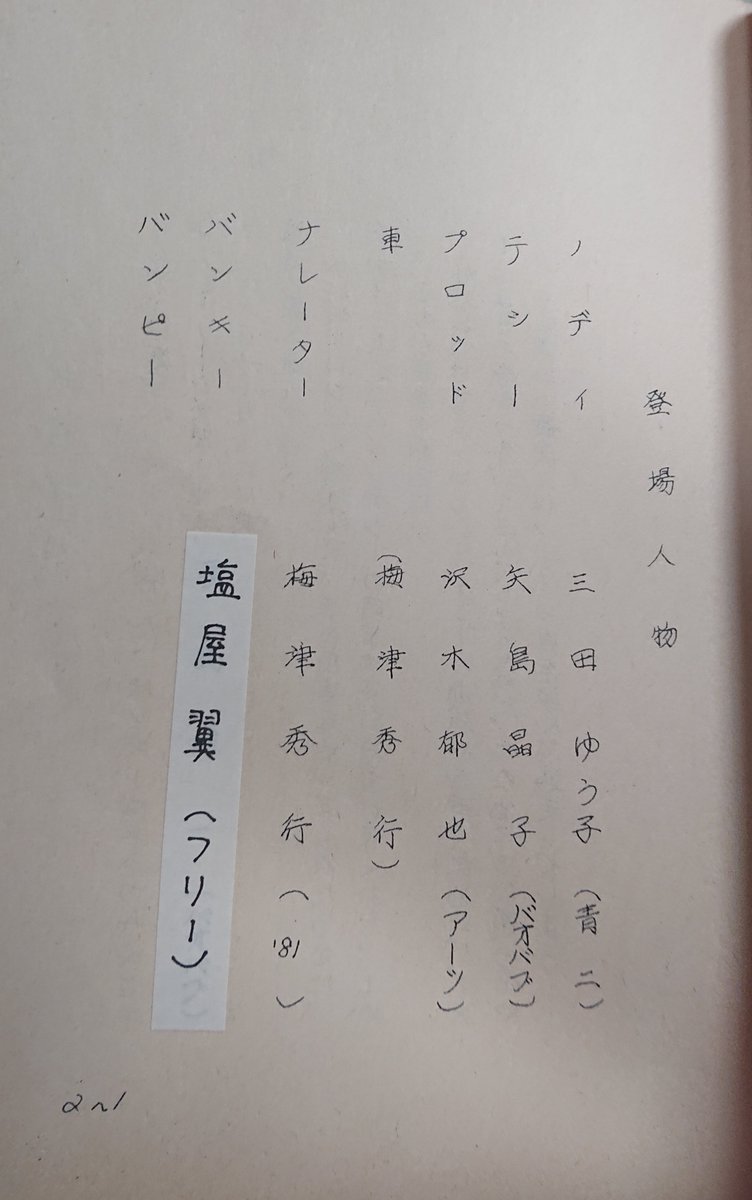 登場人物
ノディ 三田ゆう子(青二)
テシー 矢島晶子(バオバブ)
プロッド 沢木郁也(アーツ)
車 (梅津秀行)
ナレーター 梅津秀行('81)
バンキー 塩屋翼(フリー)
バンピー
2~1